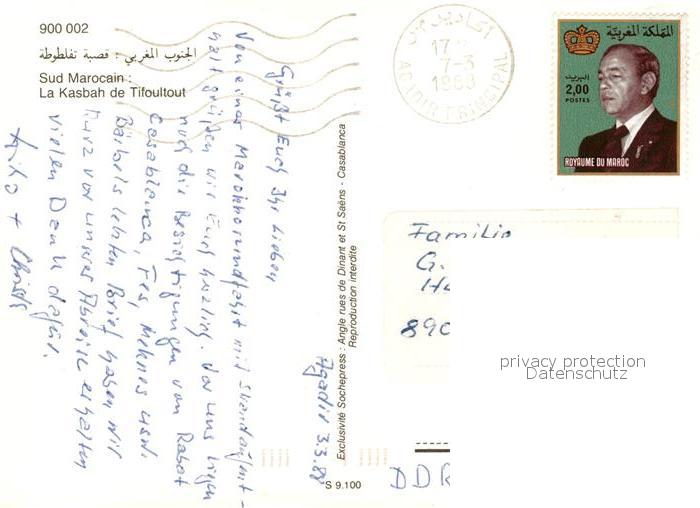 900 002
الجنوب المغربي : قصبة تفلطوطة
Sud Marocain :
La Kasbah de Tifoultout
Agadir 3.3.88
Grüßt Euch Ihr Lieben
Von einer Marokkorundfahrt mit Strandaufent-
halt grüßen wir Euch herzlich. Vor uns liegen
noch die Besichtigungen von Rabat
Casablanca, Fes, Meknes usw.
Bärbels letzten Brief haben wir
kurz vor unserer Abreise erhalten
vielen Dank dafür.
+ Christa
Exclusivité Sochepress : Angle rues de Dinant et St Saëns - Casablanca
Reproduction interdite
S 9.100
أكادير
17
7-3
1988
AGADIR PRINCIPAL
المملكة المغربية
البريد
2,00
POSTES
ROYAUME DU MAROC
Familie
G.
890
DDR
privacy protection
Datenschutz